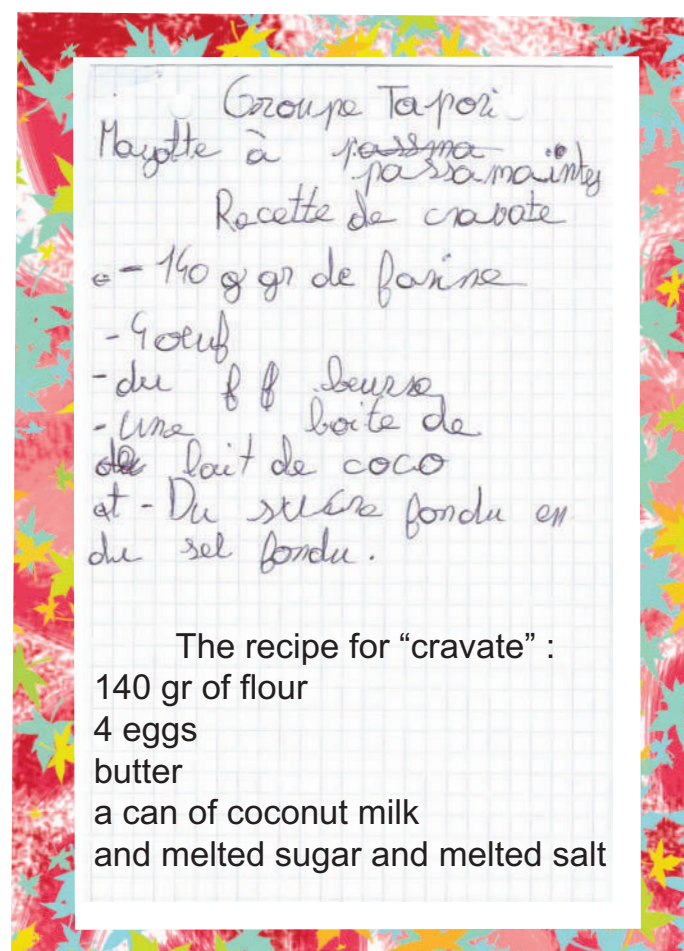 Groupe Tapori
Mayotte à passma
passamaintes
Recette de cravate
- 140 g gr de farine
- 4 oeuf
- du f f beurre
- une boite de
de lait de coco
et - Du sucre fondu en
du sel fondu.
The recipe for “cravate” :
140 gr of flour
4 eggs
butter
a can of coconut milk
and melted sugar and melted salt